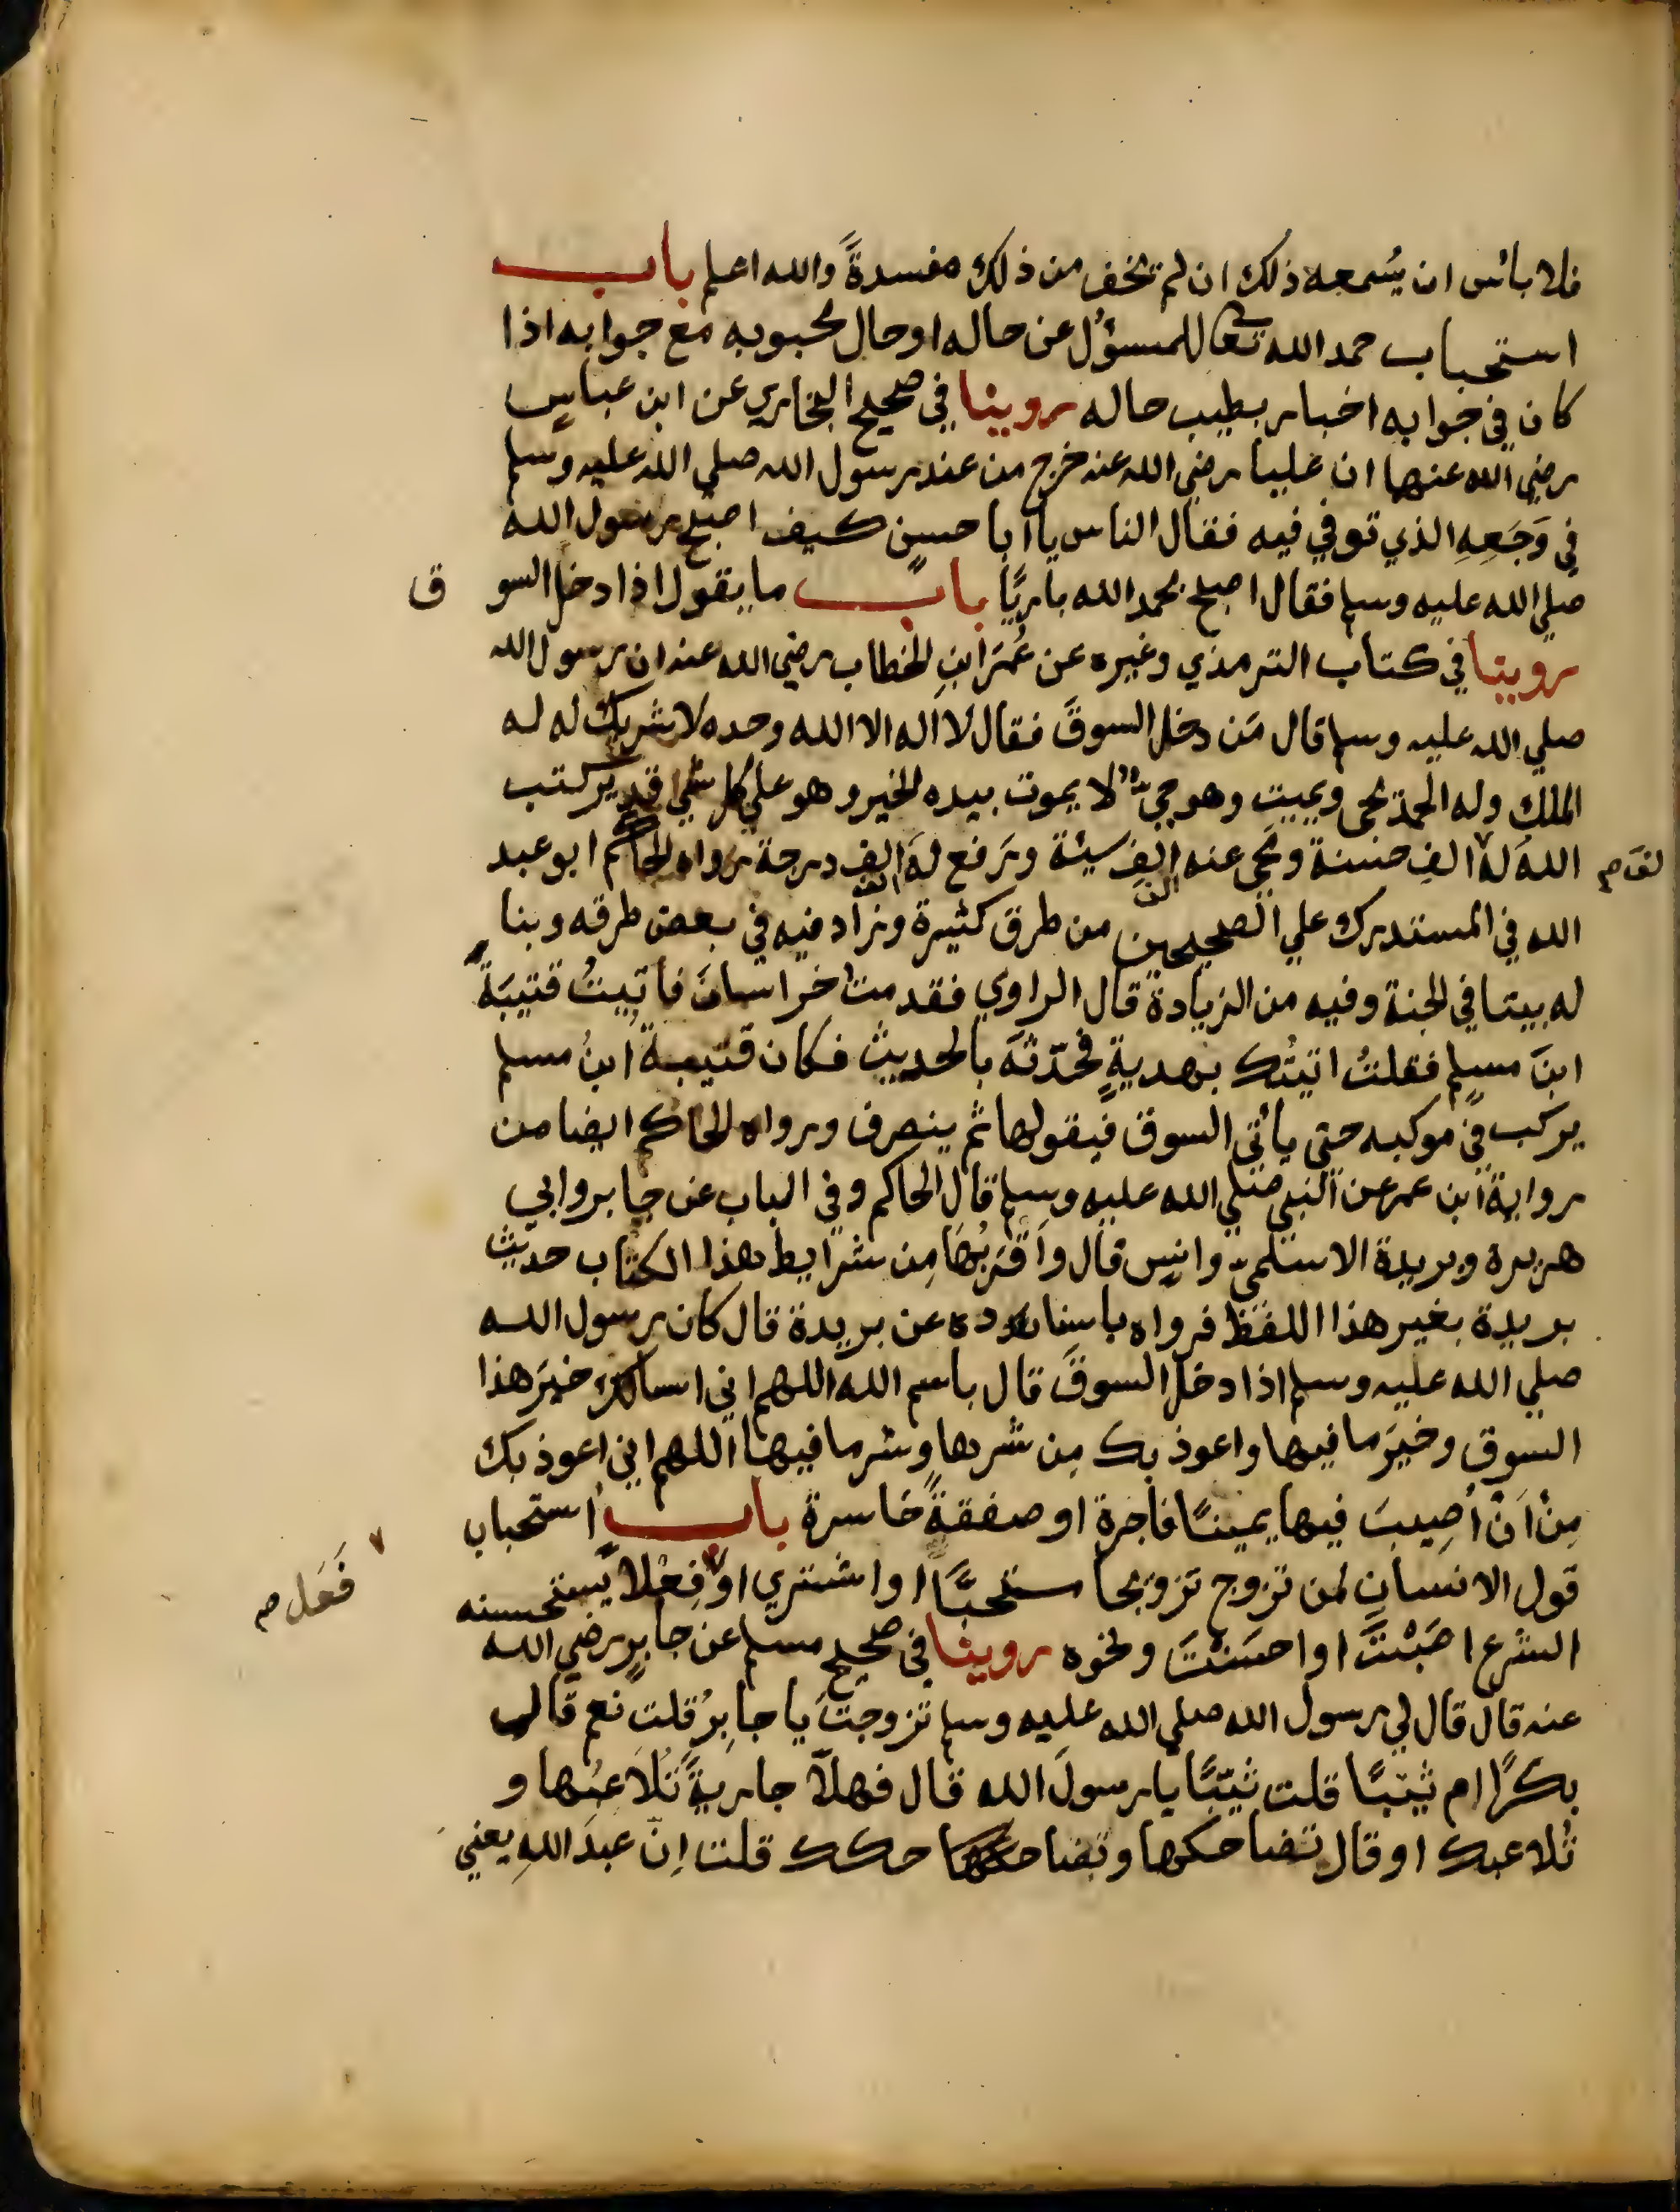 فلا بائس ان يُسمعه ذلك ان لم تخف من ذلك مفسدةً والله اعلم باب
استحباب حمد الله تعالى للمسؤل عن حاله او حال محبوبه مع جوابه اذا
كان في جوابه اخبار بطيب حاله روينا في صحيح البخاري عن ابن عباسٍ
رضي الله عنهما ان عليا رضي الله عنه خرج من عند رسول الله صلي الله عليه وسلم
في وَجَعِهِ الذي توفي فيه فقال الناس يا ابا حسنٍ كيف اصبح رسول الله
صلي الله عليه وسلم فقال اصبح بحمد الله باريًا باب ما يقول اذا دخل السوق
روينا في كتاب الترمذي وغيره عن عُمَرَ ابنِ الخطاب رضي الله عنه ان رسول الله
صلي الله عليه وسلم قال مَن دخل السوقَ فقال لا اله الا الله وحده لا شريك له له
الملك وله الحمد يحي ويميت وهو حيٌّ لا يموت بيده الخير وهو علي كل شيءٍ قدير كتب
الله له الف حسنة ومحي عنه الفِ سيئة ورَفع له الف درجة رواه الحاكم ابو عبد
الف الف
الله في المستدرك علي الصحيحين من طرق كثيرة وزاد فيه في بعض طرقه وبنا
له بيتا في الجنة وفيه من الزيادة قال الراوي فقدمت خراسانَ فاتيتُ قتيبَةَ
ابنَ مسلمٍ فقلتُ اتيتُك بهديةٍ فحدّثتُه بالحديث فكان قتيبةُ ابنُ مسلم
يركب في موكبه حتي يأتي السوق فيقولها ثم ينصرف ورواه الحاكم ايضا من
رواية ابن عمر عن النبي صلي الله عليه وسلم قال الحاكم وفي الباب عن جابر وابي
هريرة وبريدة الاسلميّ وانسٍ قال واَقرَبُها مِن شرايط هذا الكتاب حديث
بريدة بغير هذا اللفظ فرواه باسناده عن بريدة قال كان رسول الله
صلي الله عليه وسلم اذا دخل السوقَ قال باسم الله اللهم اني اسالك خيرَ هذا
السوق وخيرَ ما فيها واعوذ بك مِن شرها وشر ما فيها اللهم اني اعوذ بك
مِنْ اَنْ اُصِيبَ فيها يمينًا فاجرة او صفقةً خاسرة باب استحباب
قول الانسان لمن تزوج تزوجا مستحبًّا او اشتري او فِعْلاً يستحسنه
فَعَل م
الشرع اصَبْتَ او احسَنْتَ ونحوه روينا في صحيح مسلم عن جابرٍ رضي الله
عنه قال قال لي رسول الله صلي الله عليه وسلم تزوجتَ يا جابرُ قلت نعم قال
بكرًا ام ثيّبًا قلت ثيّبًا يا رسولَ الله قال فهلاّ جاريةً تُلاعبُها و
تُلاعبك او قال تضاحكها وتضاحكك قلت اِنّ عبدَ اللهِ يعني